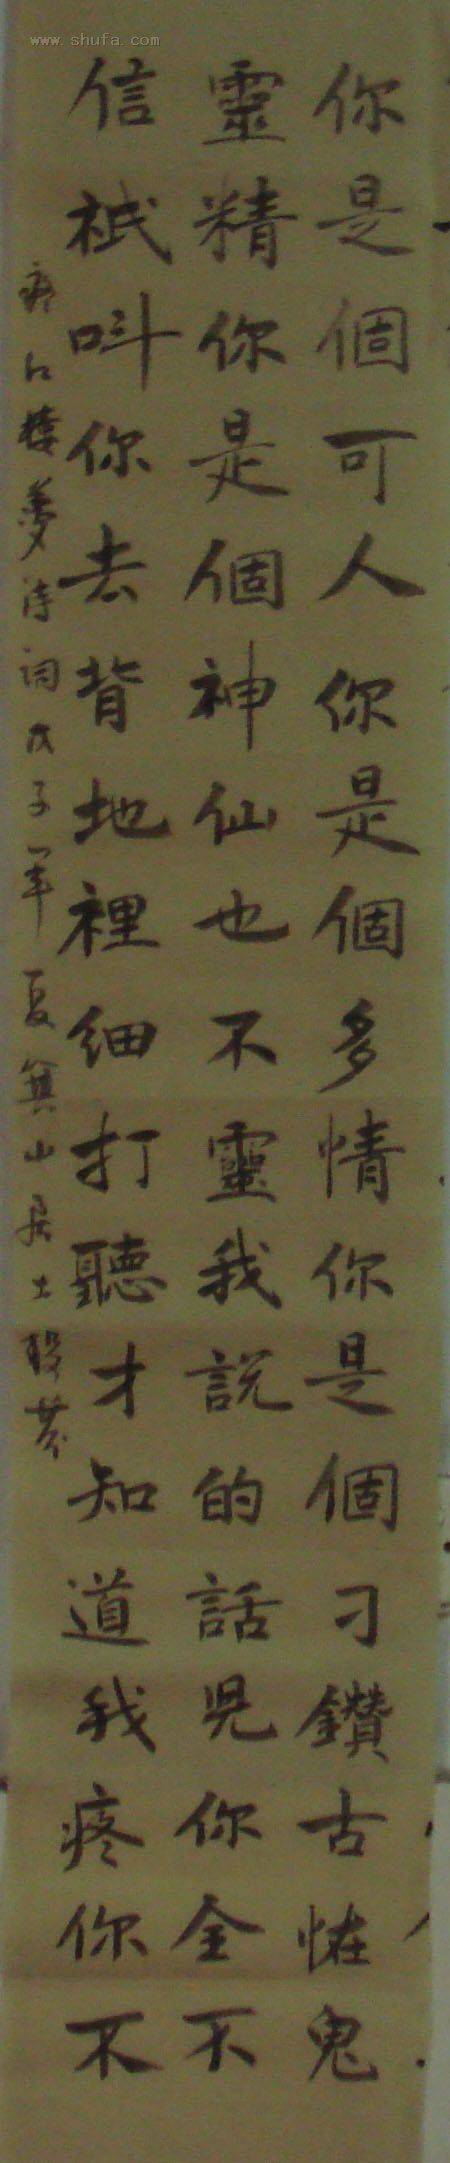 你是個可人你是個多情你是個刁鑽古怪鬼
靈精你是個神仙也不靈我說的話児你全不
信祇叫你去背地裡細打聽才知道我疼你不
紅樓夢诗词戊子年夏箕山居士
www.shufa.com